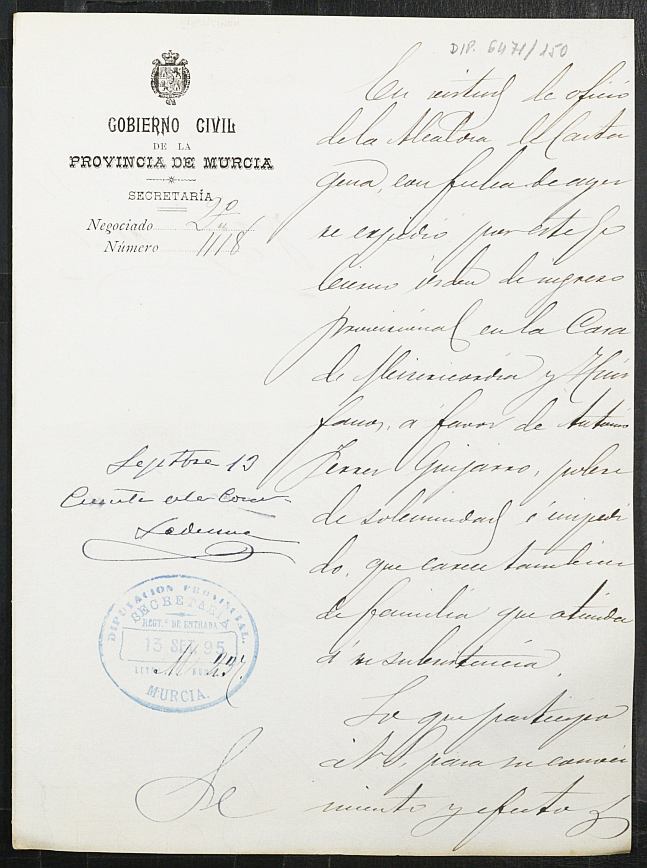 DIP. 6471/150
GOBIERNO CIVIL
DE LA
PROVINCIA DE MURCIA
SECRETARÍA
Negociado 2º
Número 1118
En virtud de oficio
de la Alcaldia de Carta
gena, con fecha de ayer
se expidió por este Go
bierno orden de ingreso
provisional en la Casa
de Misericordia y Huér
fanos, a favor de Antonio
Ferrer Guijarro, pobre
de solemnidad é impedi
do, que carece tambien
de familia que atienda
á su subsistencia.
Lo que participo
á V.S. para su conoci
miento y efectos
Septbre 13
Cuenta a la Comon
Ledesma
DIPUTACION PROVINCIAL.
SECRETARIA
REGT.º DE ENTRADA
13 SET 95
MURCIA.